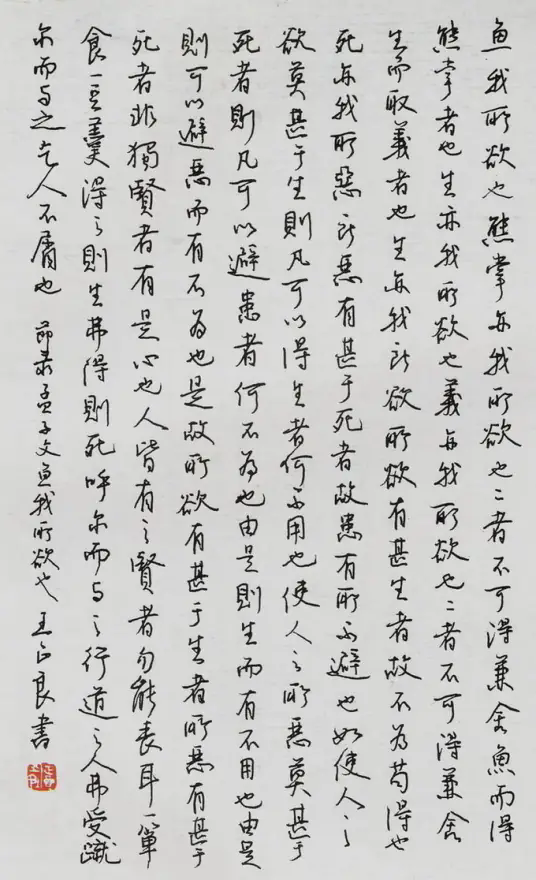 鱼我所欲也熊掌亦我所欲也二者不可得兼舍魚而得
熊掌者也生亦我所欲也義亦我所欲也二者不可得兼舍
生而取義者也生亦我所欲所欲有甚生者故不為苟得也
死亦我所惡所惡有甚于死者故患有所不避也如使人之
欲莫甚于生則凡可以得生者何不用也使人之所惡莫甚于
死者則凡可以避患者何不為也由是則生而有不用也由是
則可以避惡而有不為也是故所欲有甚于生者所惡有甚于
死者非獨賢者有是心也人皆有之賢者勿能丧耳一簞
食一豆羹得之則生弗得則死呼尔而与之行道之人弗受蹴
尔而与之乞人不屑也 節录孟子文鱼我所欲也 王正良書